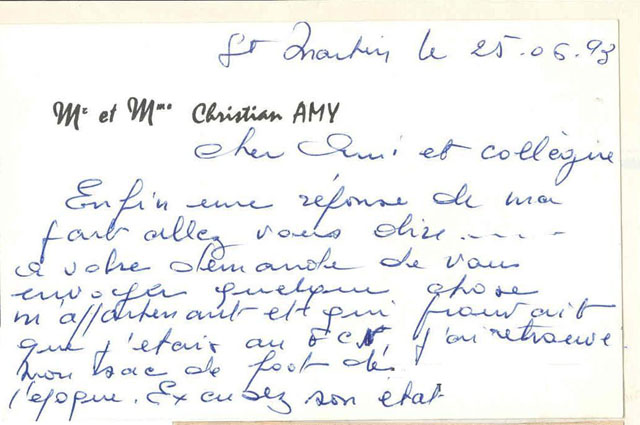 St Martin le 25.06.93
Mr et Mme Christian AMY
cher Ami et collègue
Enfin une réponse de ma
part allez vous dire.....
a votre demande de vous
envoyer quelque chose
m'appartenant et qui prouvait
que j'etais au F C N, j'ai retrouvé
mon sac de foot de
l'époque. Excusez son etat